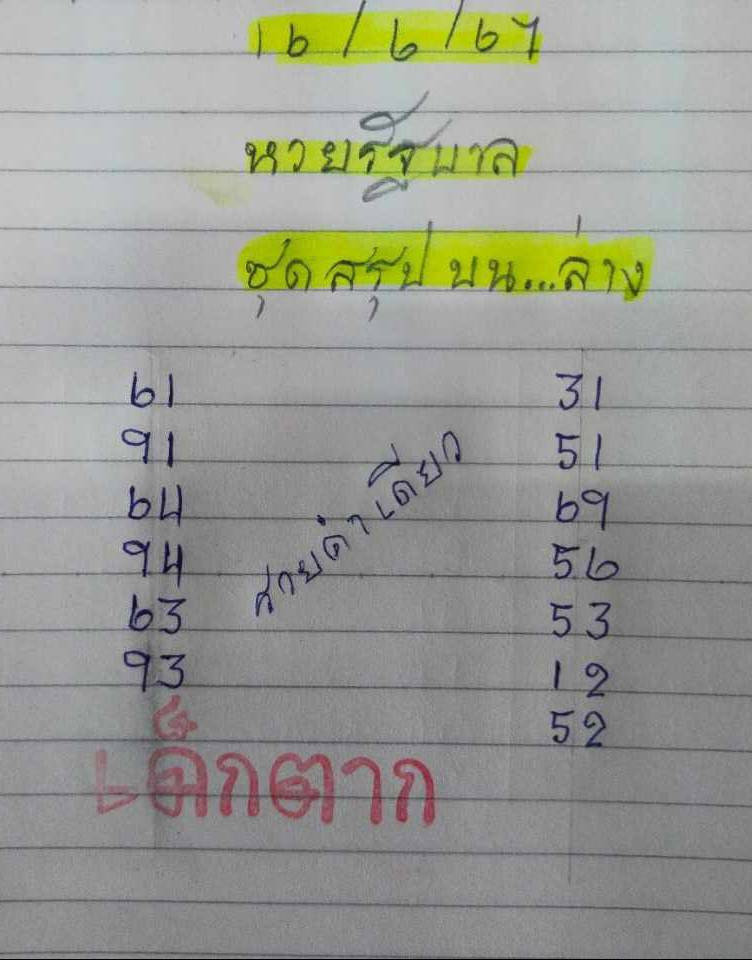 16/6/67
หวยรัฐบาล
ชุดสรุป บน...ล่าง
61 31
91 51
64 69
94 56
63 53
93 12
52
สายดำเดียว
เด็กตาก